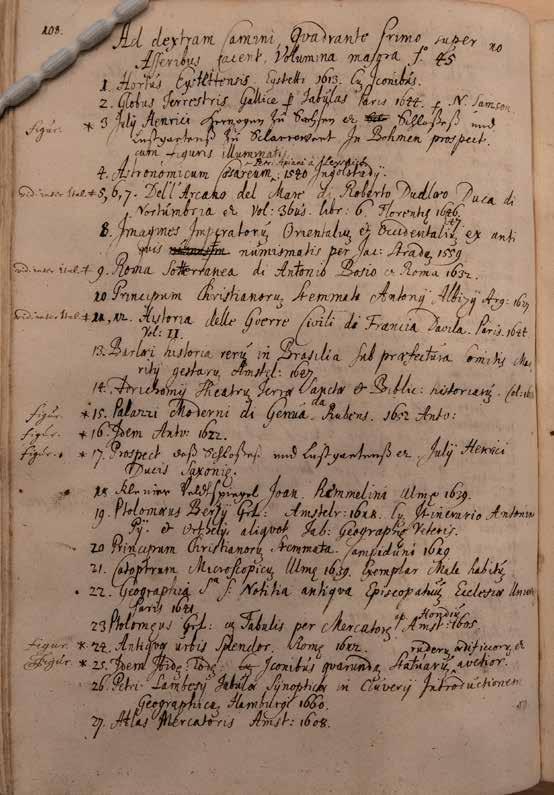 208.
Ad dextram Camini, Quadrante primo super no
Asseribus jacent, Volumina majora f.º 45
1. Hortus Eystettensis. Eystetti 1613. Cũ Iconibus.
2. Globus Terrestris, Gallice p Tabulas Paris 1644. p N. Samson
figur. * 3 July Henrici Herzogen zů Sachsen et Schloßes und
Lustgartens zů Sclaccowert In Böhmen prospect.
cum figuris illuminatis
4. Astronomicum Cæsareum Per: Apiani à Leysnick 1540 Ingolstadÿ.
vid. inter Ital. + 5, 6, 7. Dell' Arcano del Mare di Roberto Dudleo Duca di
Nortumbria et Vol: 3bus. libr: 6. Florentiæ 1646. 47
8. Imagines Imperatorũ Orientaliũ et Occidentaliũ ex anti
quis numismatis per Jac: Strada 1559.
vid. inter Ital. + 9. Roma Sotterranea di Antonio Bosio Roma 1632.
10. Principum Christianorũ Stemmata Antonÿ Albizÿ Arg: 1627
vid. inter Ital. + 11, 12. Historia delle Guerre Civili di Francia Davila. Paris. 1644
Vol: II.
13. Barlæi historia rerũ in Brasilia sub præfectura Comitis Mau
ritÿ gestarũ, Amstel: 1647.
14. Adrichomÿ Theatrũ Terræ Sanctæ et Biblic: historiarũ. Col: 16
figur. * 15. Palazzi Moderni di Genua da Rubens. 1652 Antv:
figur. * 16. Idem Antv: 1622.
figur. * 17. Prospect deß Schloßes und Lustgartenß July Henrici
Ducis Saxoniæ.
18. Kleiner Veldtspiegel Joan. Remmelini Ulmæ 1639.
19. Ptolomæus Bertÿ Grl: Amstelr: 1618. Cũ Itinerario Antonin
Pÿ. et Orthelÿ aliquot Tab: Geographiæ Veteris.
20 Principum Christianorũ Stemmata. Campiduni 1619
21. Catoptrum Microscopicũ Ulmæ 1639. Exemplar Male habitũ
22. Geographia S.ª s: Notitia antiqua Episcopatuũ Ecclesiæ Univer
Paris 1641.
23 Ptolomeus Grl: cũ Tabulis per Mercatorẽ ap. Hondiũ Amst: 1605.
figur * 24. Antiquæ urbis Splendor. Romæ 1612. ruderũ ædificiorũ et
figur * 25. Idem Jconibus quarundã Statuarũ auctior.
26. Petri Lambecÿ Tabulæ Synopticæ in Cluverÿ Introductionem
Geographicã. Hamburgi 1660.
27. Atlas Mercatoris Amst: 1608.